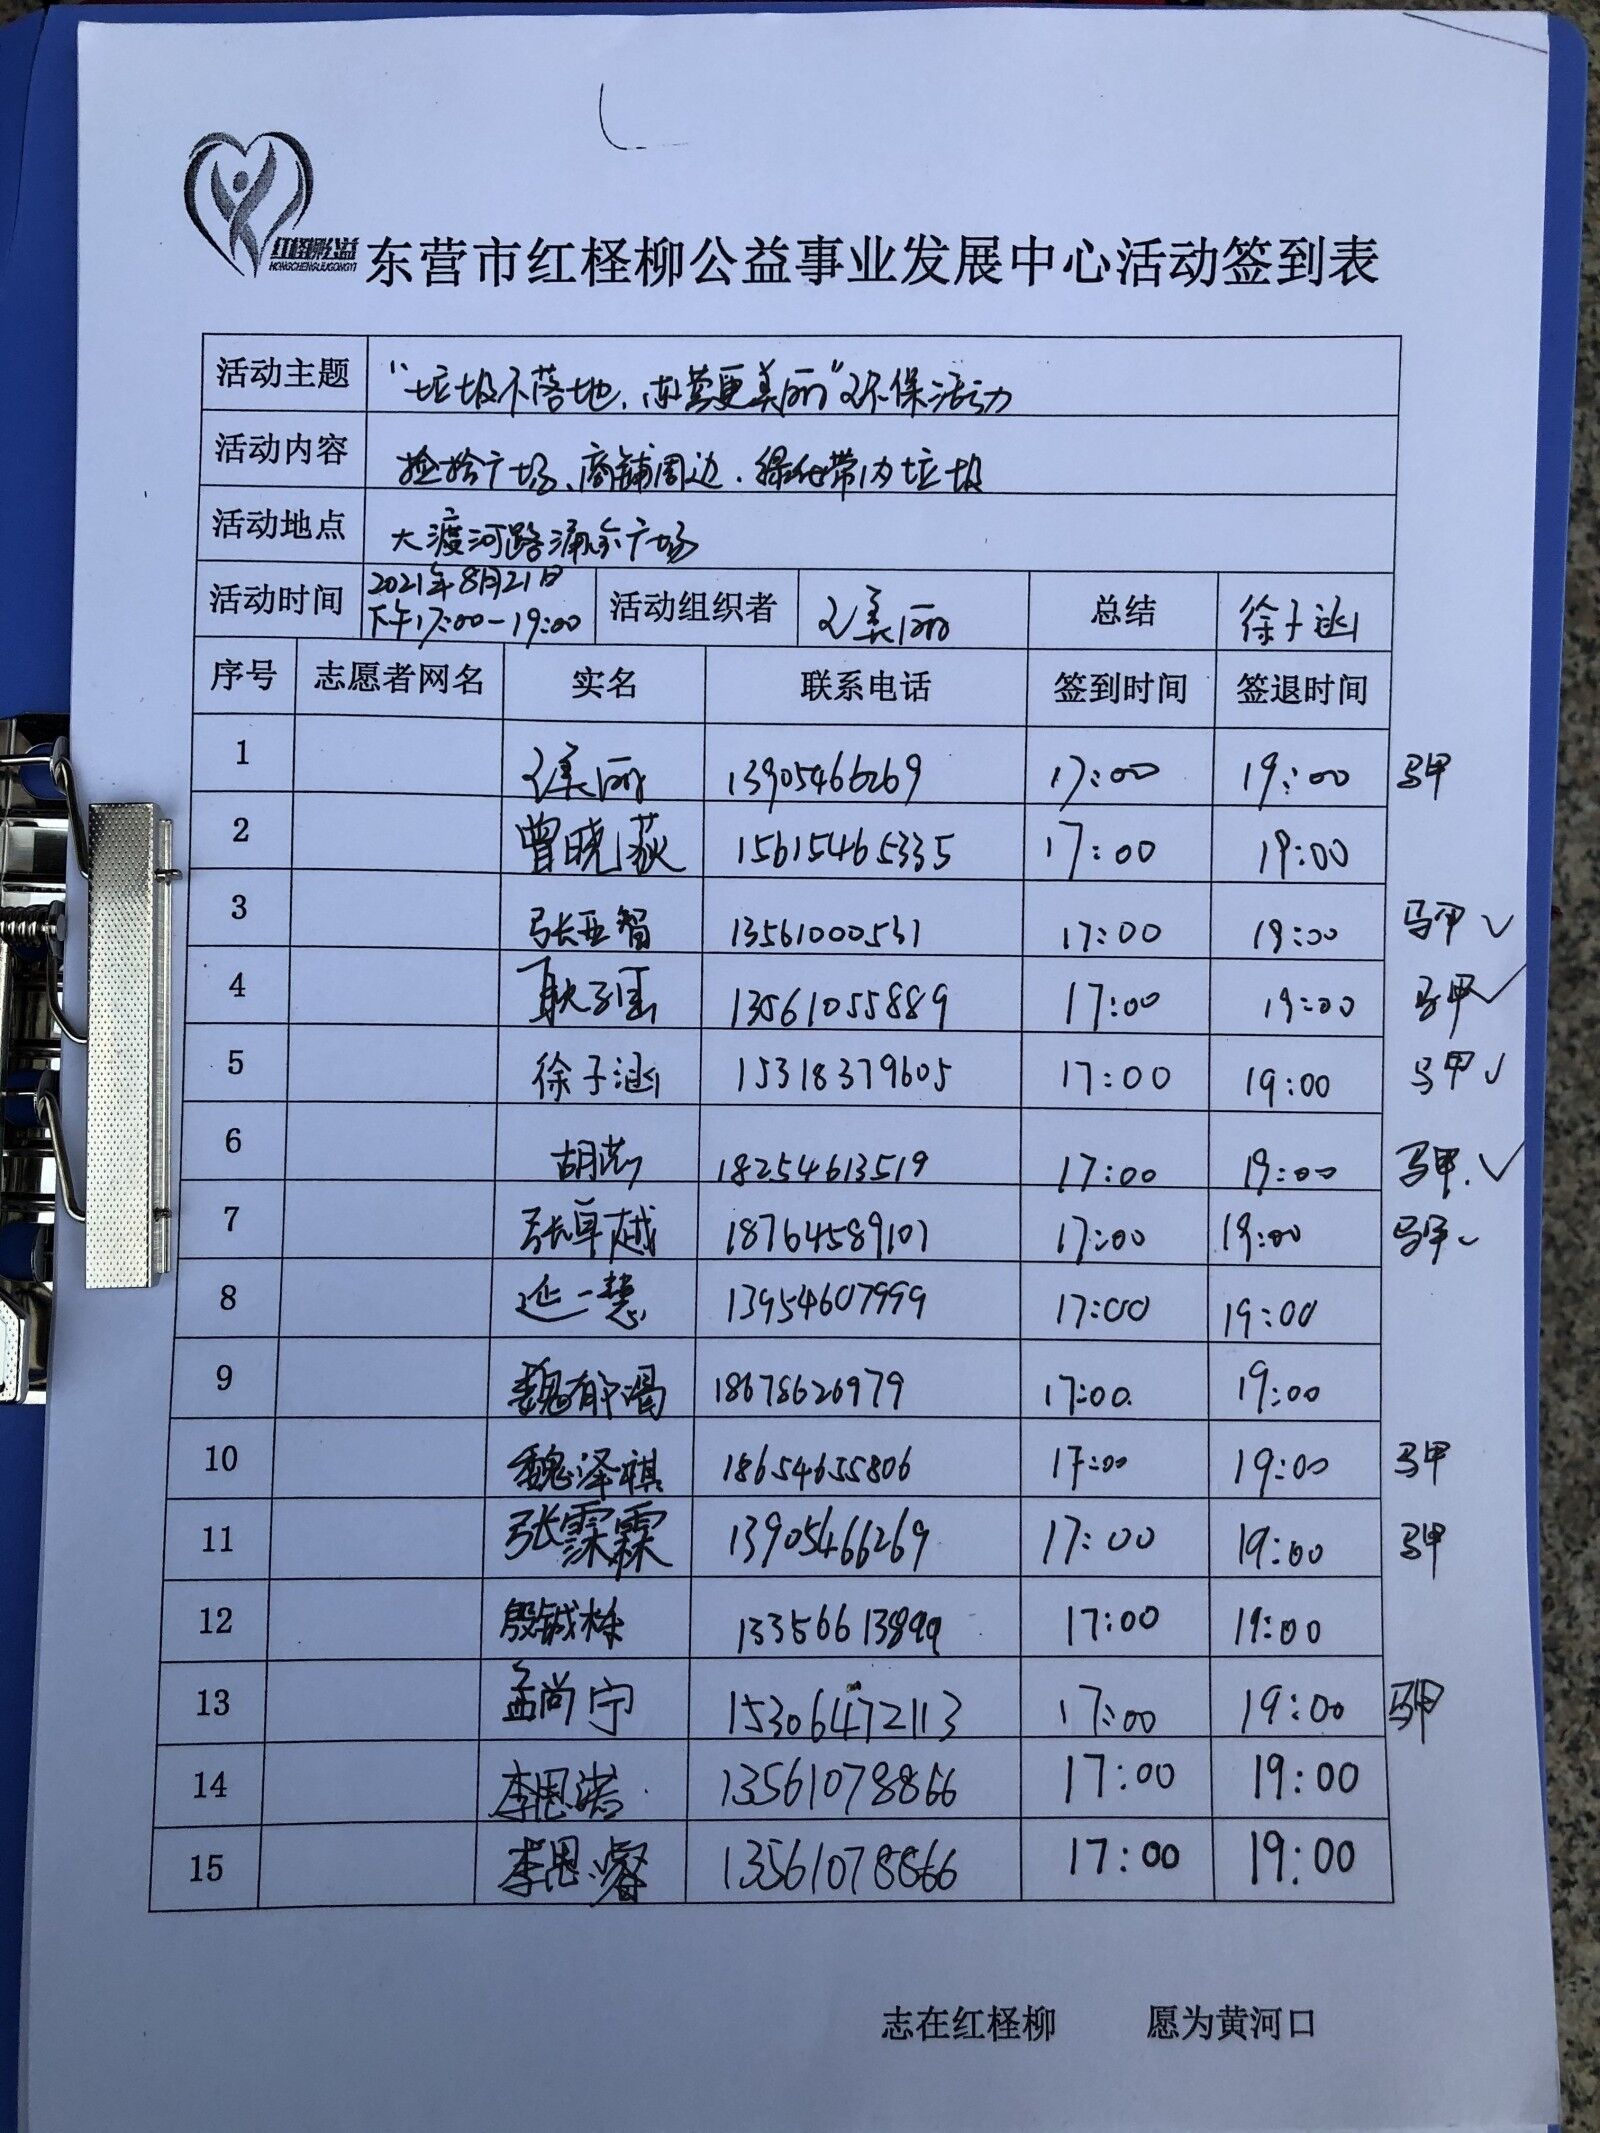 红柽柳公益
HONGCHENGLIUGONGYI
东营市红柽柳公益事业发展中心活动签到表
活动主题 “垃圾不落地,东营更美丽”环保活动
活动内容 捡拾广场、商铺周边、绿化带内垃圾
活动地点 大渡河路涌金广场
活动时间 2021年8月21日 下午17:00-19:00 活动组织者 美丽 总结 徐子涵
序号 志愿者网名 实名 联系电话 签到时间 签退时间
1 美丽 13905466269 17:00 19:00 马甲
2 曾晓荻 15615465335 17:00 19:00
3 张亚智 13561000531 17:00 19:00 马甲 ✓
4 耿子 13561055889 17:00 19:00 马甲 ✓
5 徐子涵 15318379605 17:00 19:00 马甲 ✓
6 胡 18254613519 17:00 19:00 马甲. ✓
7 张卓越 18764589107 17:00 19:00 马甲 ✓
8 延一慧 13954607999 17:00 19:00
9 魏郁 18678626979 17:00. 19:00
10 魏泽祺 18654655806 17:00 19:00 马甲
11 张霖霖 13905466269 17:00 19:00 马甲
12 殷铖栋 13356613899 17:00 19:00
13 孟尚宁 15306472113 17:00 19:00 马甲
14 李思诺 13561078866 17:00 19:00
15 李思睿 13561078866 17:00 19:00
志在红柽柳 愿为黄河口